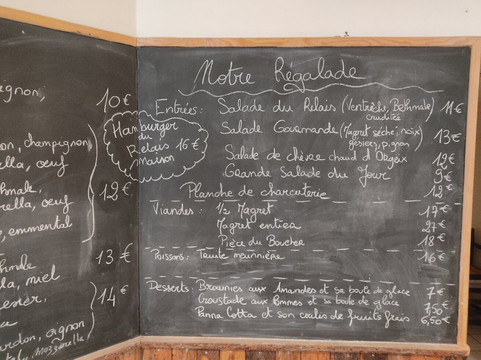 ignon,
10€
on, champignon
ella, oeuf
hmale,
rella, oeuf
, emmental
12€
13€
lla, miel
14€
urdon, oignon
mozzarella
Hamburger
du
Relais 16€
maison
Notre Régalade
Entrées: Salade du Relais (Ventrèche, Bethmale) 11€
crudité
Salade Gourmande (Magret séché, noix) 13€
gésiers, pignon
Salade de chèvre chaud d'Orgeix 12€
Grande Salade du Jour 9€
Planche de charcuterie 12€
Viandes: 1/2 Magret 17€
Magret entier 27€
Pièce du Boucher 18€
Poissons: Truite meunière 16€
Desserts: Brownies aux Amandes et sa boule de glace 7€
Croustade aux Pommes et sa boule de glace 7,50€
Panna Cotta et son coulis de fruits frais 6,50€